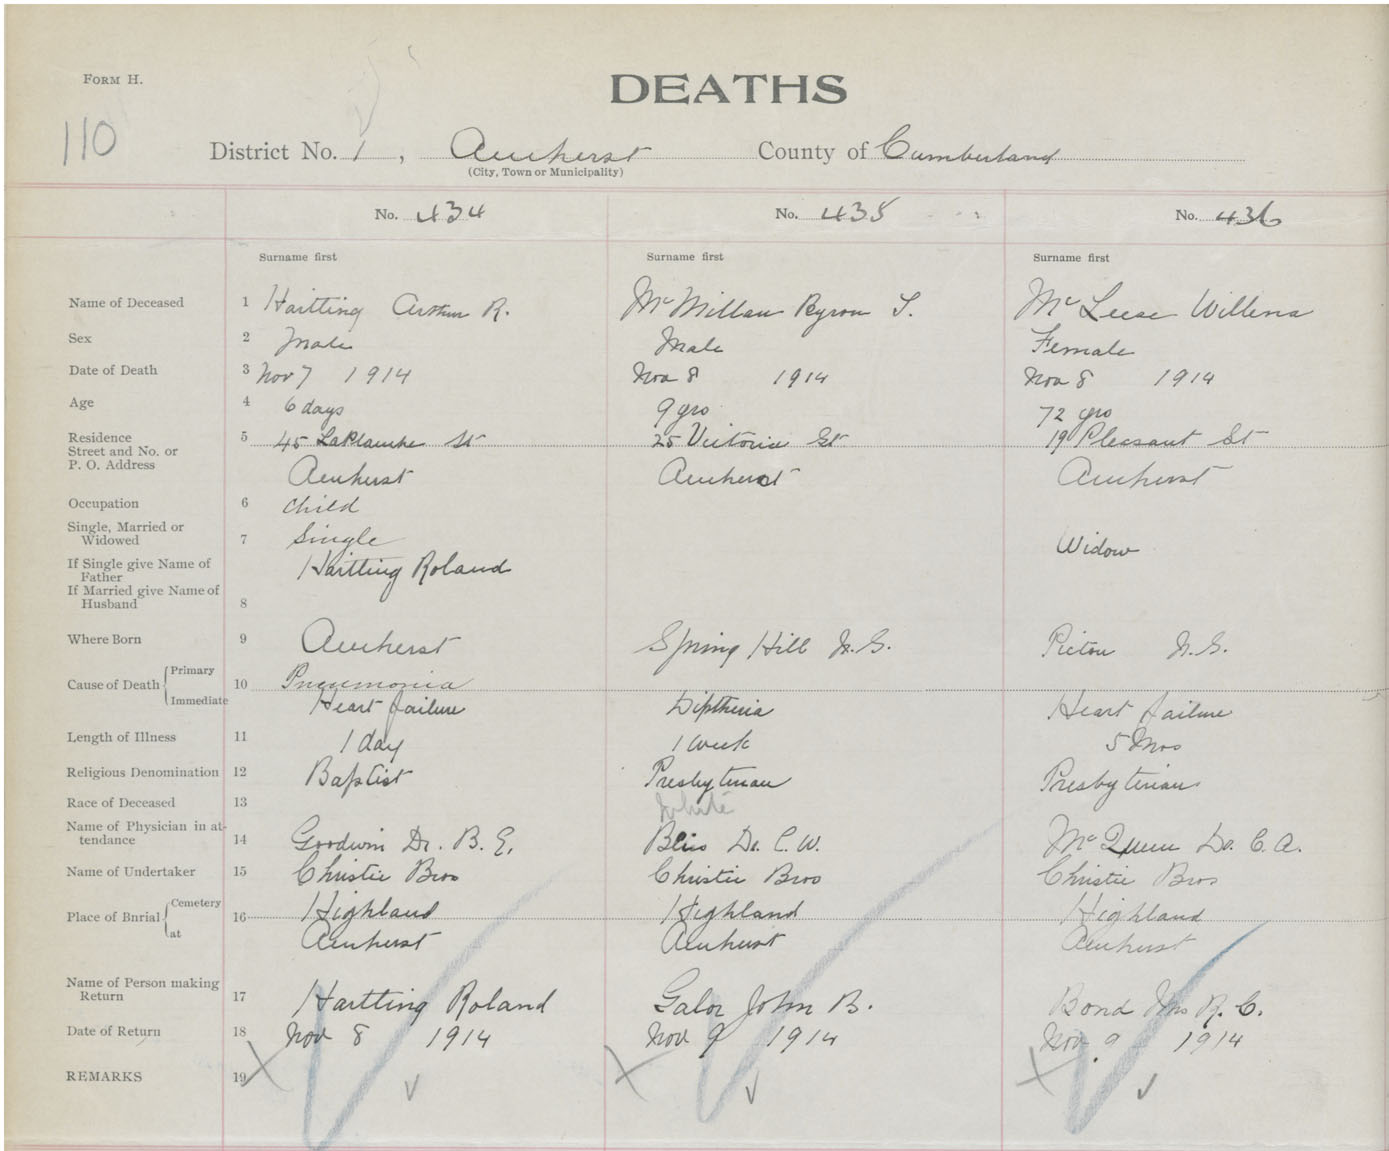 FORM H.
DEATHS
110
District No. 1, Amherst County of Cumberland
(City, Town or Municipality)
No. 434 No. 435 No. 436
Surname first Surname first Surname first
Name of Deceased 1 Hartling Arthur R. McMillan Byron T. McLeese Willena
Sex 2 Male Male Female
Date of Death 3 Nov 7 1914 Nov 8 1914 Nov 8 1914
Age 4 6 days 9 yrs 72 yrs
Residence
Street and No. or 5 45 LaPlanche St 25 Victoria St 19 Pleasant St
P. O. Address Amherst Amherst Amherst
Occupation 6 Child
Single, Married or
Widowed 7 Single Widow
If Single give Name of
Father Hartling Roland
If Married give Name of
Husband 8
Where Born 9 Amherst Spring Hill N.S. Pictou N.S.
Cause of Death Primary 10 Pneumonia
Immediate Heart failure Diptheria Heart failure
Length of Illness 11 1 day 1 week 5 Mos
Religious Denomination 12 Baptist Presbyterian Presbyterian
Race of Deceased 13 White
Name of Physician in at-
tendance 14 Goodwin Dr. B. E. Bliss Dr. C. W. McQueen Dr. C. A.
Name of Undertaker 15 Christie Bros Christie Bros Christie Bros
Place of Bnrial Cemetery 16 Highland Highland Highland
at Amherst Amherst Amherst
Name of Person making
Return 17 Hartling Roland John B. Bond Mrs R. C.
Date of Return 18 Nov 8 1914 Nov 9 1914 Nov 9 1914
REMARKS 19